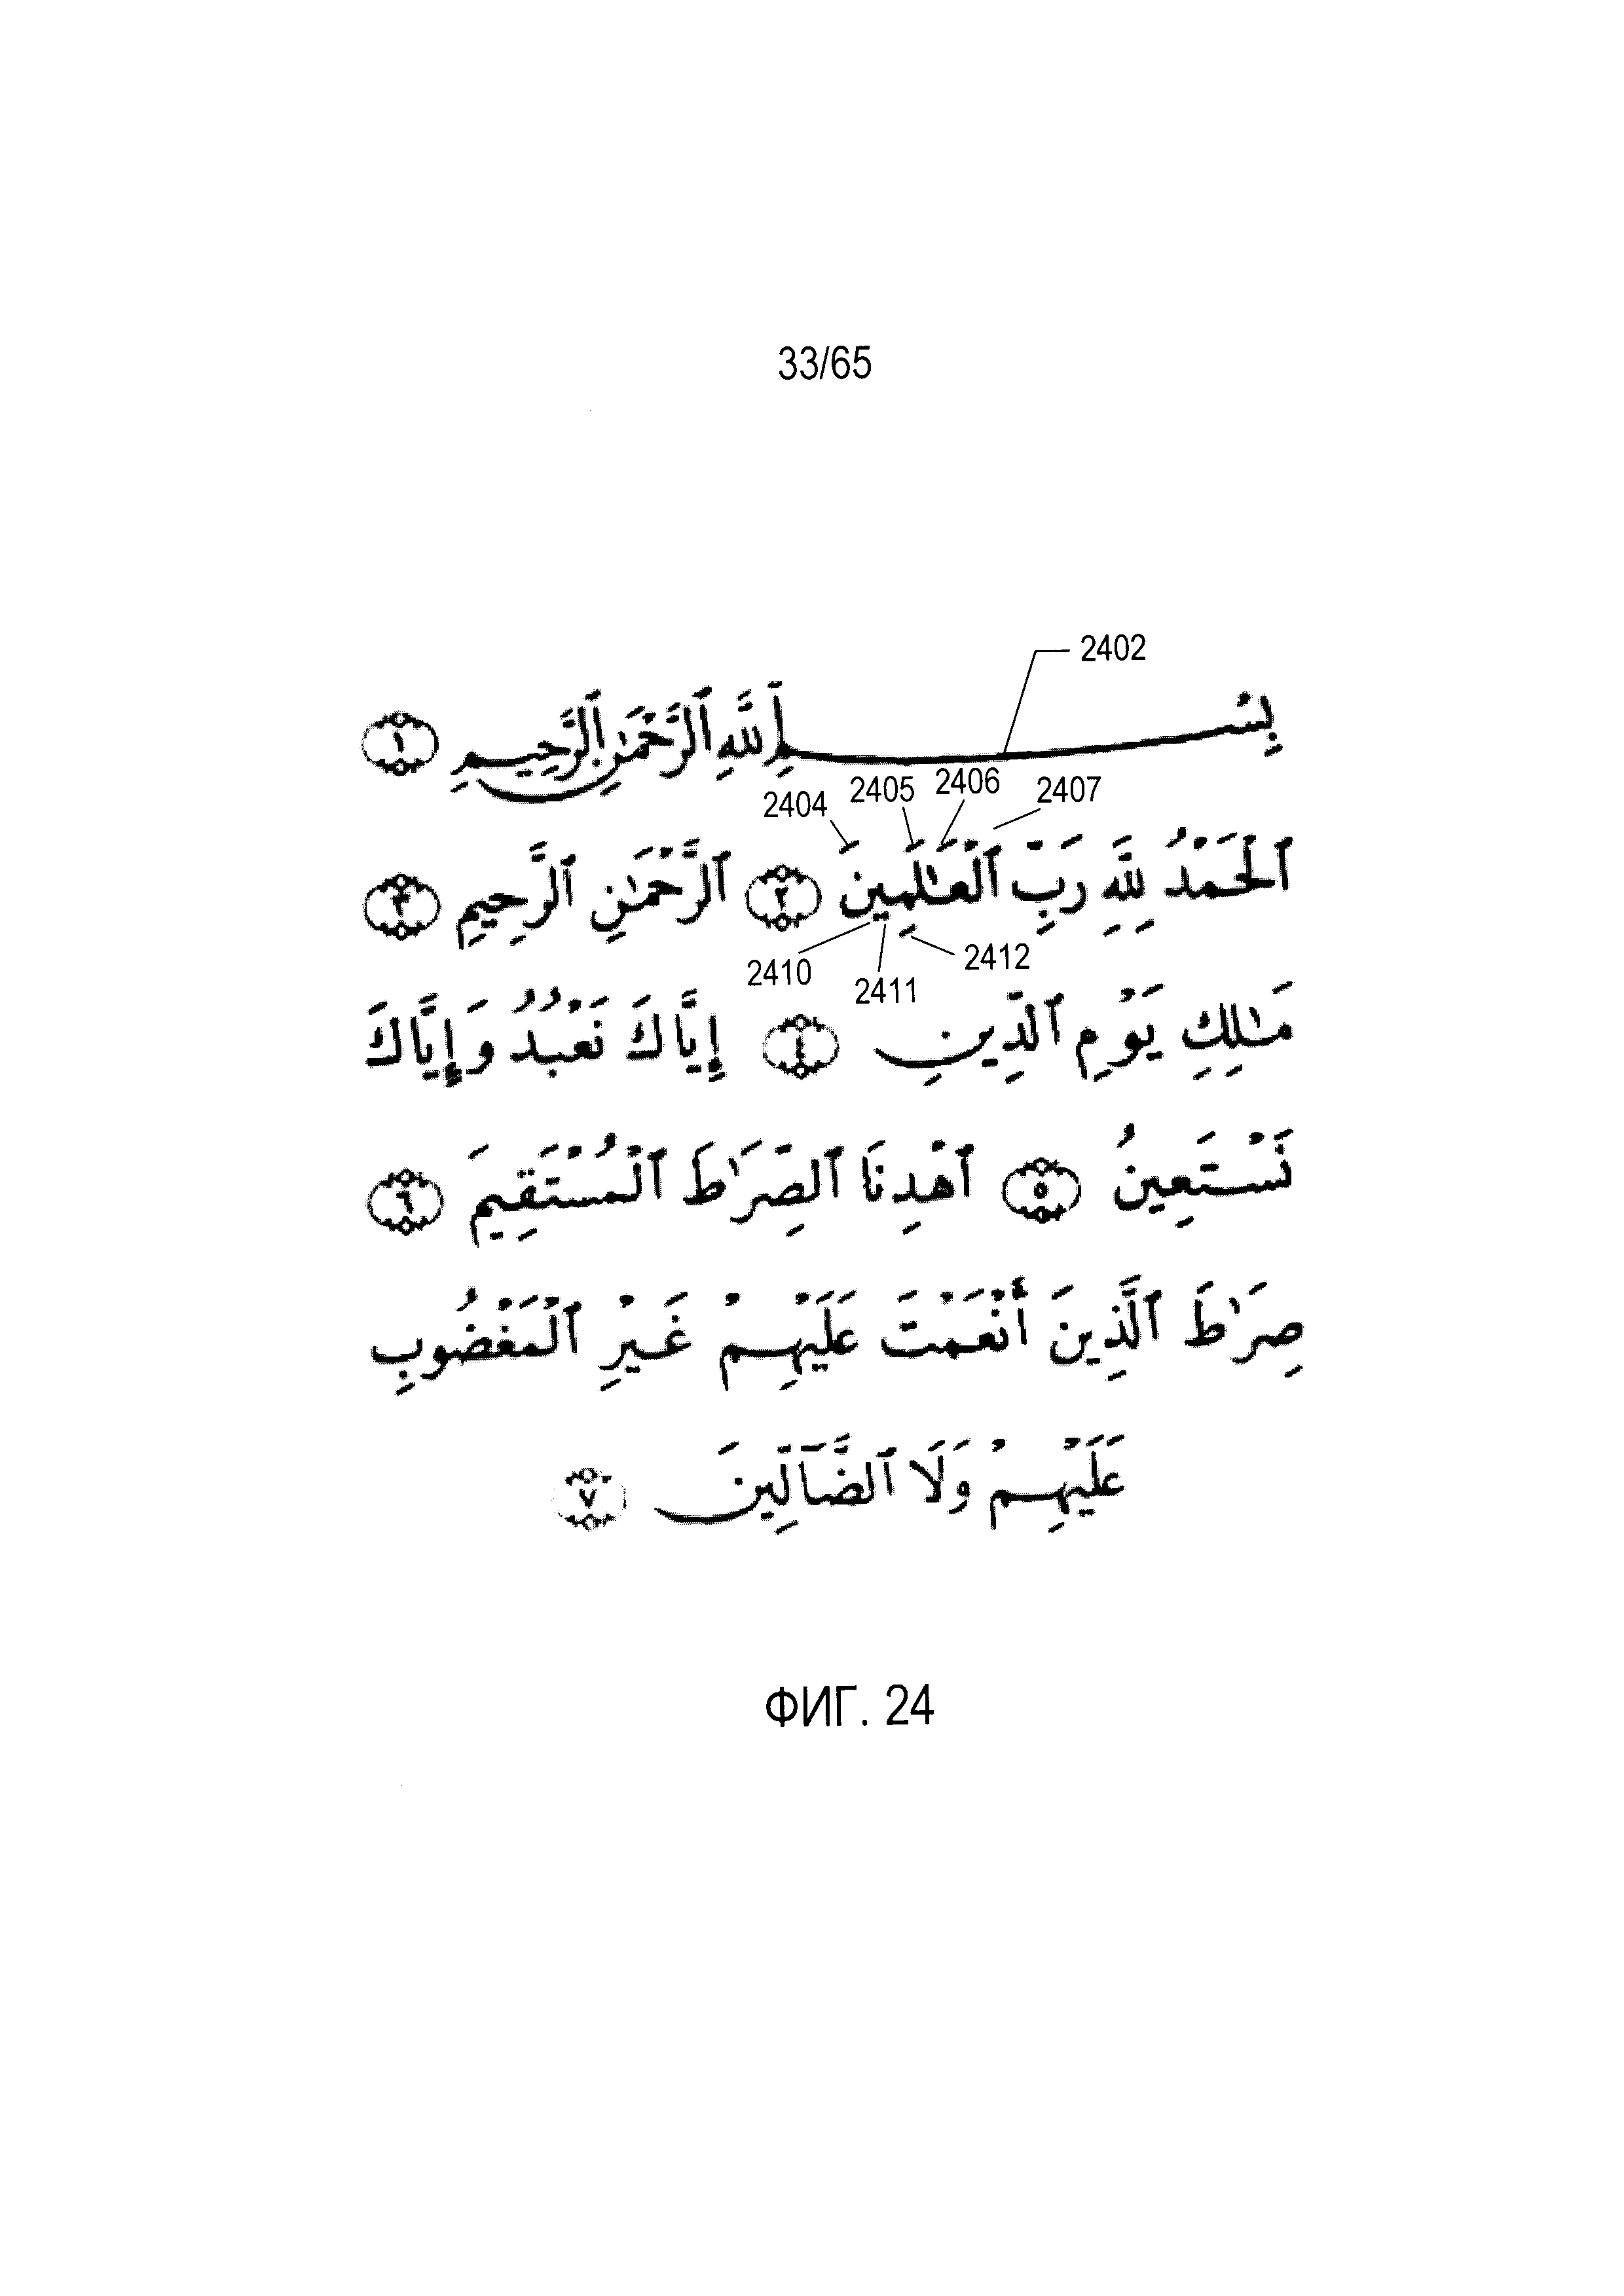 33/65
2402
بِسْمِ ٱللَّهِ ٱلرَّحْمَٰنِ ٱلرَّحِيمِ ١
2404 2405 2406 2407
ٱلْحَمْدُ لِلَّهِ رَبِّ ٱلْعَٰلَمِينَ ٢ ٱلرَّحْمَٰنِ ٱلرَّحِيمِ ٣
2410 2411 2412
مَٰلِكِ يَوْمِ ٱلدِّينِ ٤ إِيَّاكَ نَعْبُدُ وَإِيَّاكَ
نَسْتَعِينُ ٥ ٱهْدِنَا ٱلصِّرَٰطَ ٱلْمُسْتَقِيمَ ٦
صِرَٰطَ ٱلَّذِينَ أَنْعَمْتَ عَلَيْهِمْ غَيْرِ ٱلْمَغْضُوبِ
عَلَيْهِمْ وَلَا ٱلضَّآلِّينَ ٧
ФИГ. 24